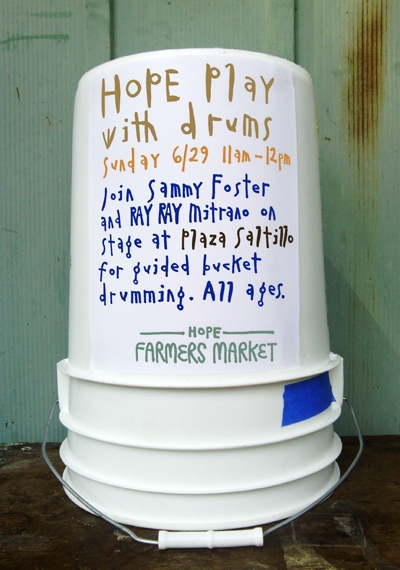 HOPE Play
with drums
Sunday 6/29 11am-12pm
Join Sammy Foster
and RAY RAY Mitrano on
stage at Plaza Saltillo
for guided bucket
drumming. All ages.
HOPE
FARMERS MARKET